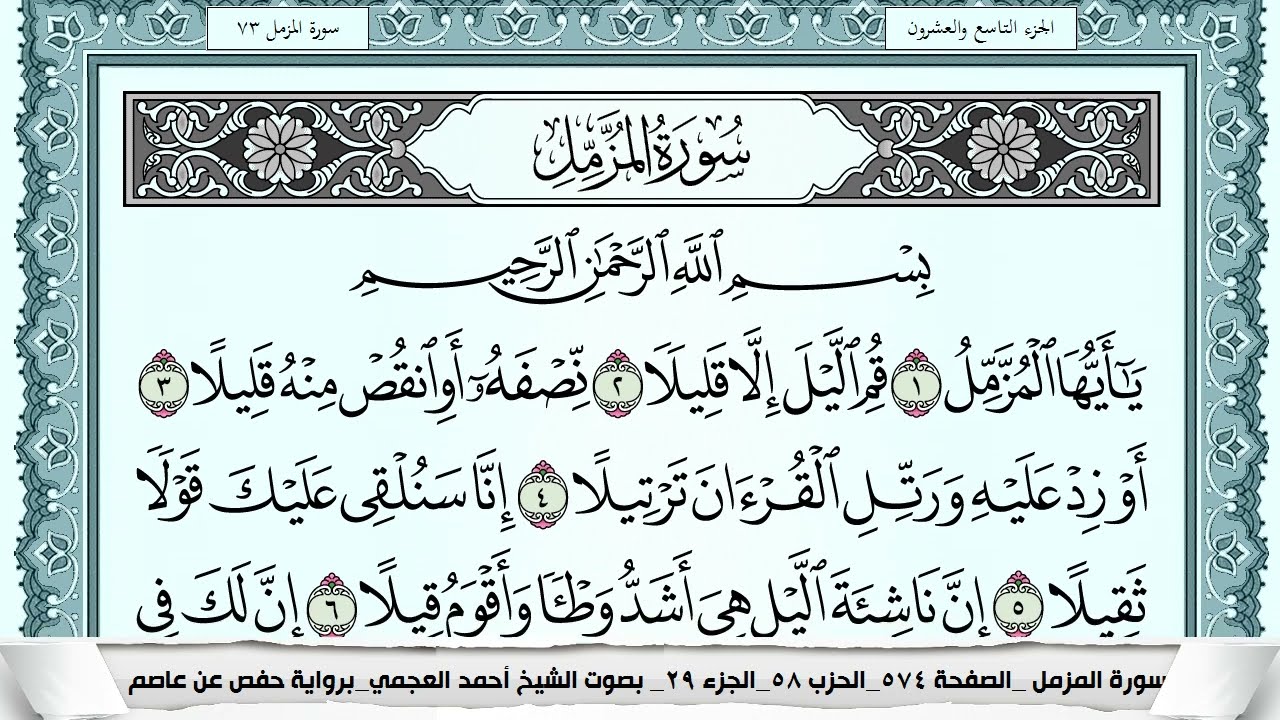 الجزء التاسع والعشرون
سورة المزمل ٧٣
سُورَةُ المُزَّمِّلِ
بِسْمِ ٱللَّهِ ٱلرَّحْمَٰنِ ٱلرَّحِيمِ
يَٰٓأَيُّهَا ٱلْمُزَّمِّلُ ١ قُمِ ٱلَّيْلَ إِلَّا قَلِيلًا ٢ نِّصْفَهُۥٓ أَوِ ٱنقُصْ مِنْهُ قَلِيلًا ٣
أَوْ زِدْ عَلَيْهِ وَرَتِّلِ ٱلْقُرْءَانَ تَرْتِيلًا ٤ إِنَّا سَنُلْقِى عَلَيْكَ قَوْلًا
ثَقِيلًا ٥ إِنَّ نَاشِئَةَ ٱلَّيْلِ هِىَ أَشَدُّ وَطْـًٔا وَأَقْوَمُ قِيلًا ٦ إِنَّ لَكَ فِى
سورة المزمل _الصفحة ٥٧٤_الحزب ٥٨_الجزء ٢٩_ بصوت الشيخ أحمد العجمي_برواية حفص عن عاصم